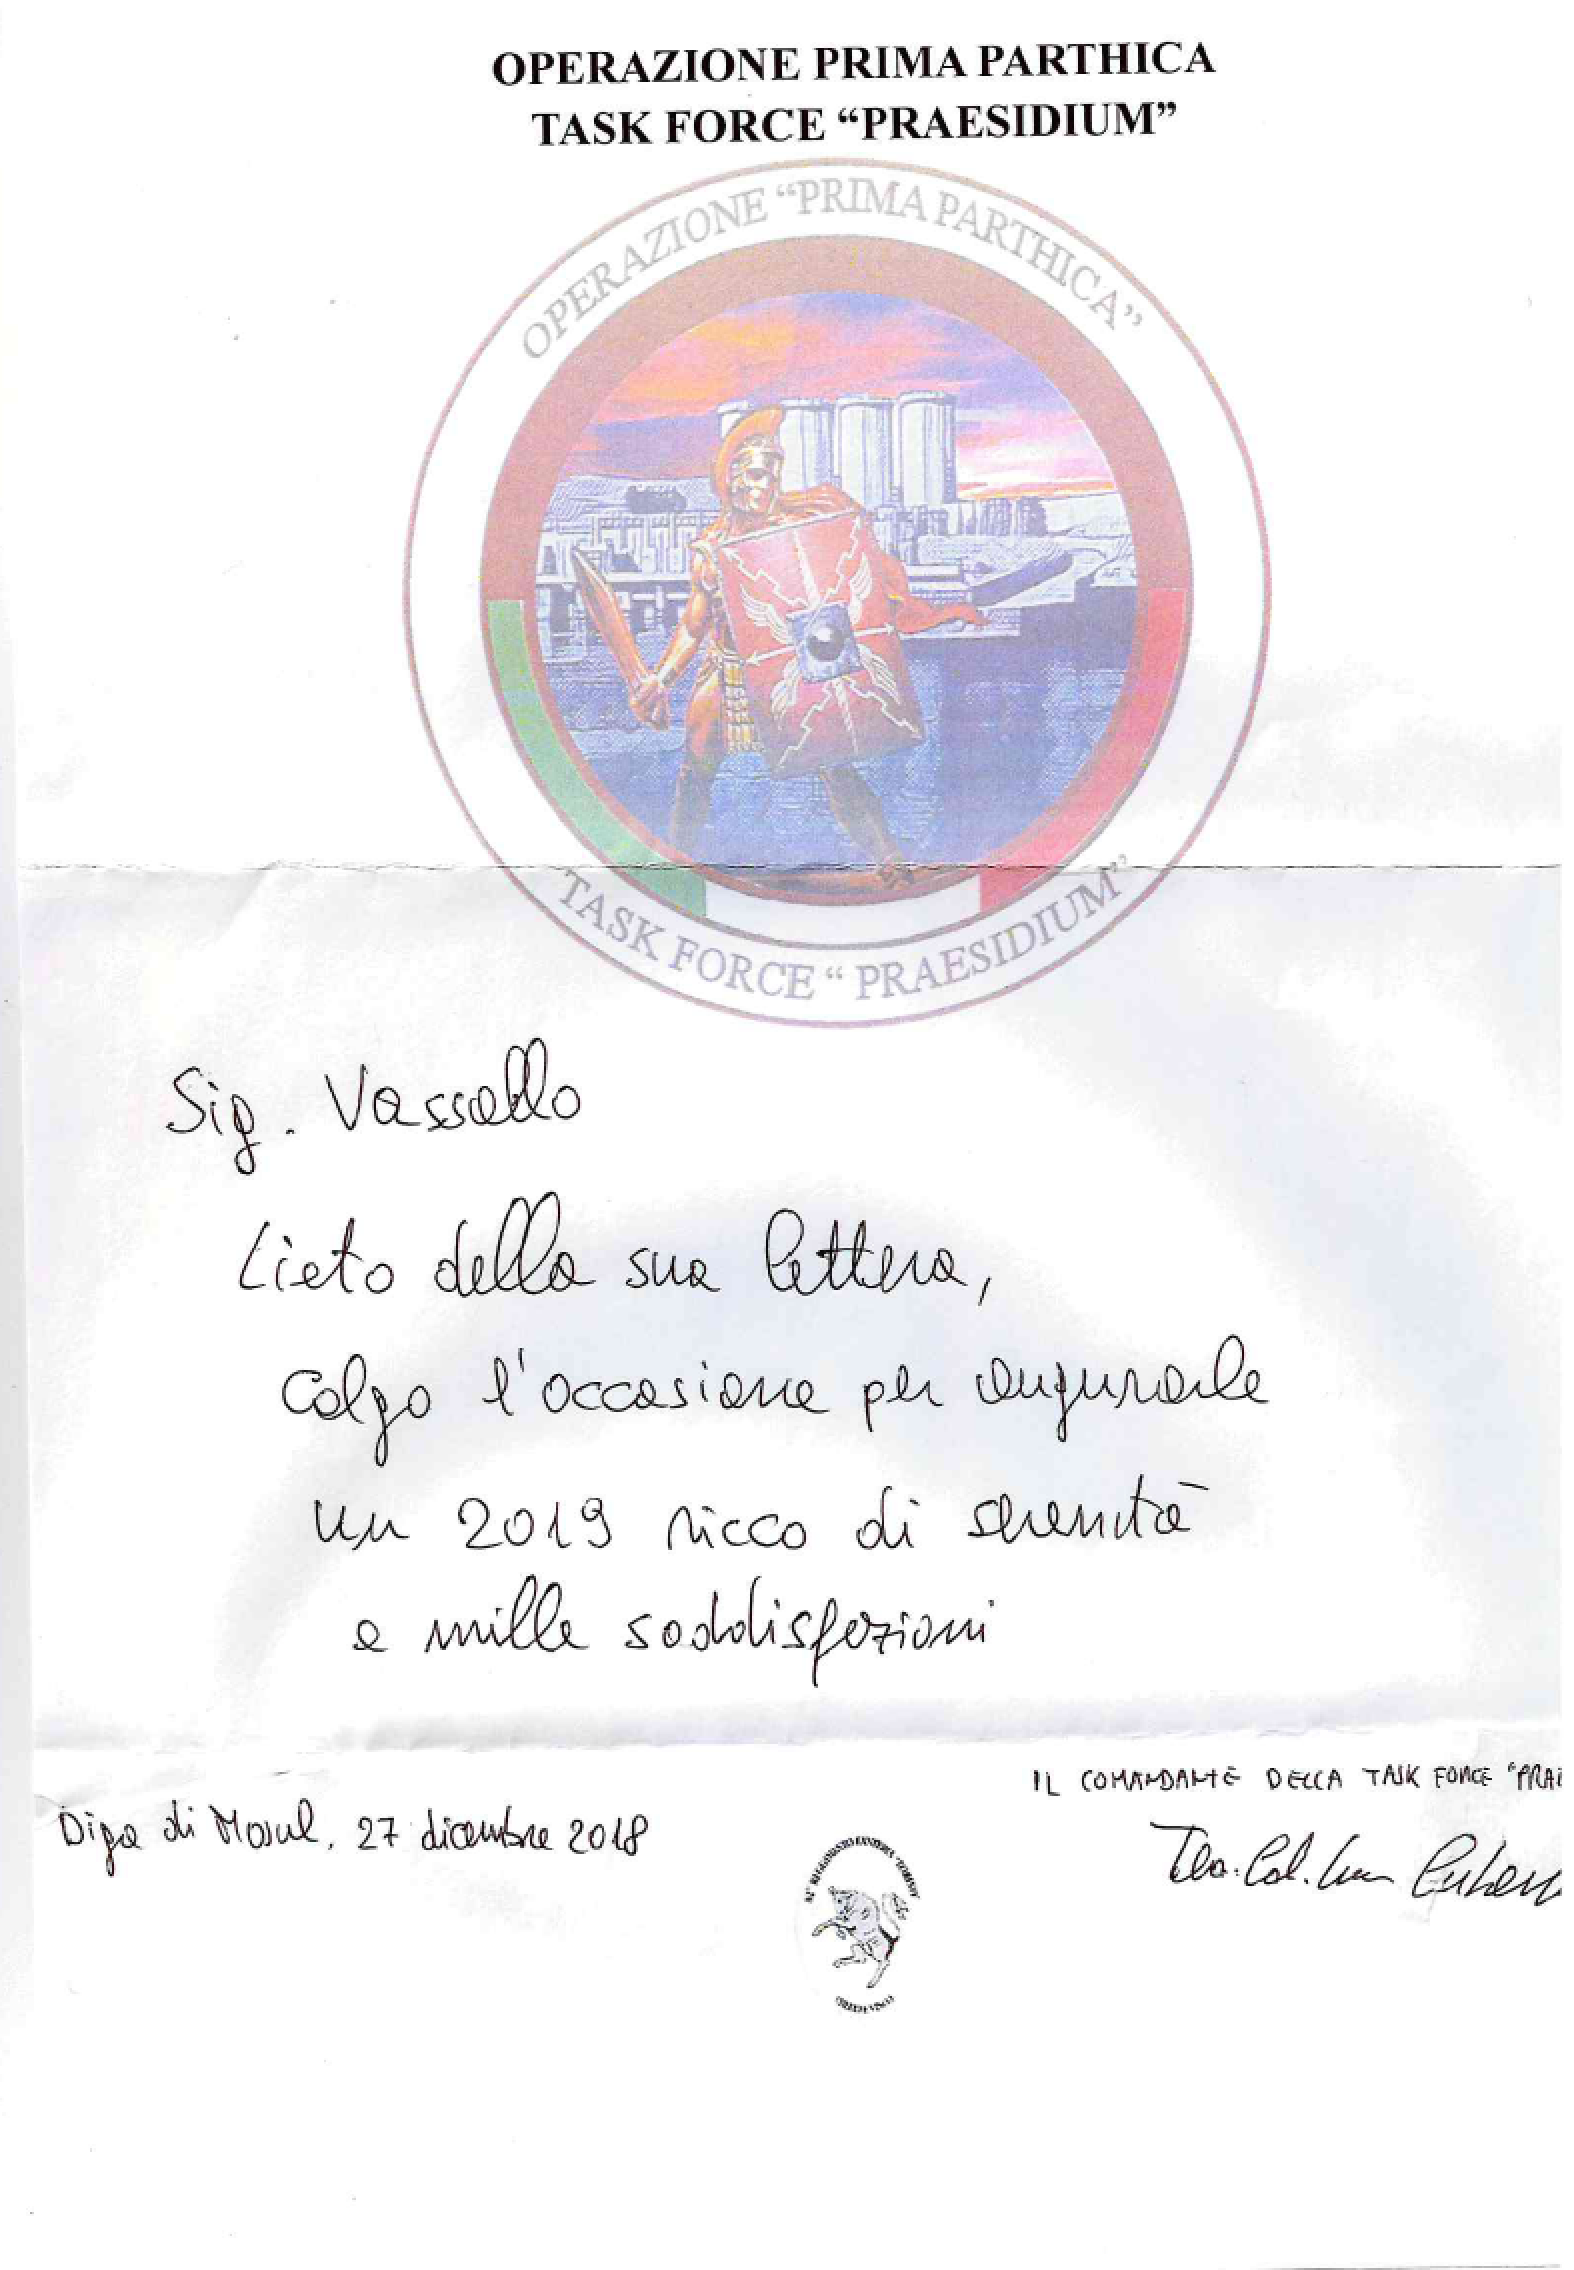 OPERAZIONE PRIMA PARTHICA
TASK FORCE “PRAESIDIUM”
OPERAZIONE “PRIMA PARTHICA”
TASK FORCE “ PRAESIDIUM”
Sig. Vassallo
Lieto della sua lettera,
colgo l'occasione per augurarle
un 2019 ricco di serenità
e mille soddisfazioni
IL COMANDANTE DELLA TASK FORCE "PRAE
Diga di Mosul, 27 dicembre 2018
Ten. Col.
82° REGGIMENTO FANTERIA "TORINO"